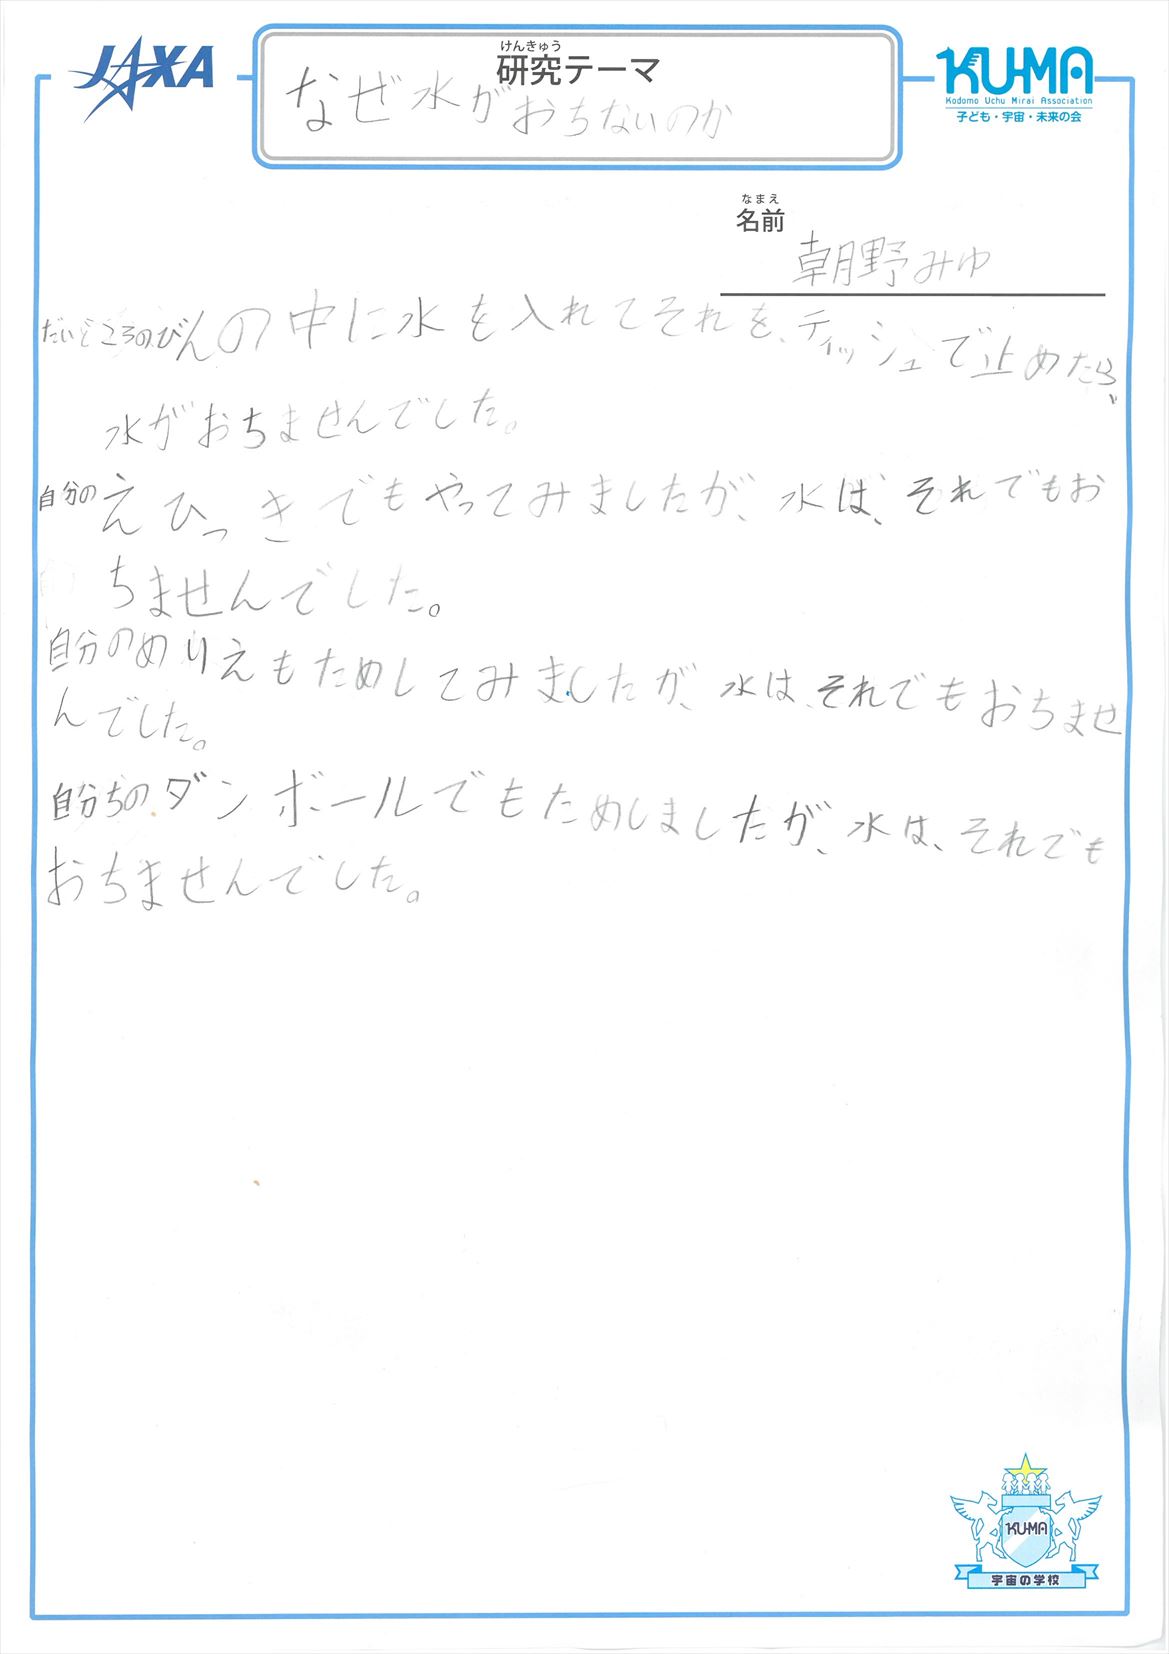 JAXA
けんきゅう
研究テーマ
なぜ水がおちないのか
KU-MA
Kodomo Uchu Mirai Association
子ども・宇宙・未来の会
なまえ
名前
朝野みゆ
だいどころのびんの中に水を入れてそれを、ティッシュで止めたら、
水がおちませんでした。
自分のえひっきでもやってみましたが、水は、それでもお
ちませんでした。
自分のめりえもためしてみましたが、水は、それでもおちませ
んでした。
自分ちのダンボールでもためしましたが、水は、それでも
おちませんでした。
KU-MA
宇宙の学校